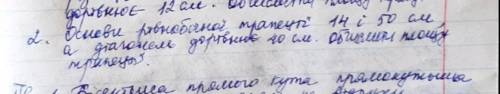 дорівнює 12 см. Обчисліть площу
2. Основи рівнобічної трапеції 14 і 50 см,
а діагональ дорівнює 40 см. Обчисліть площу
трапеції.
прямого кута прямокутника